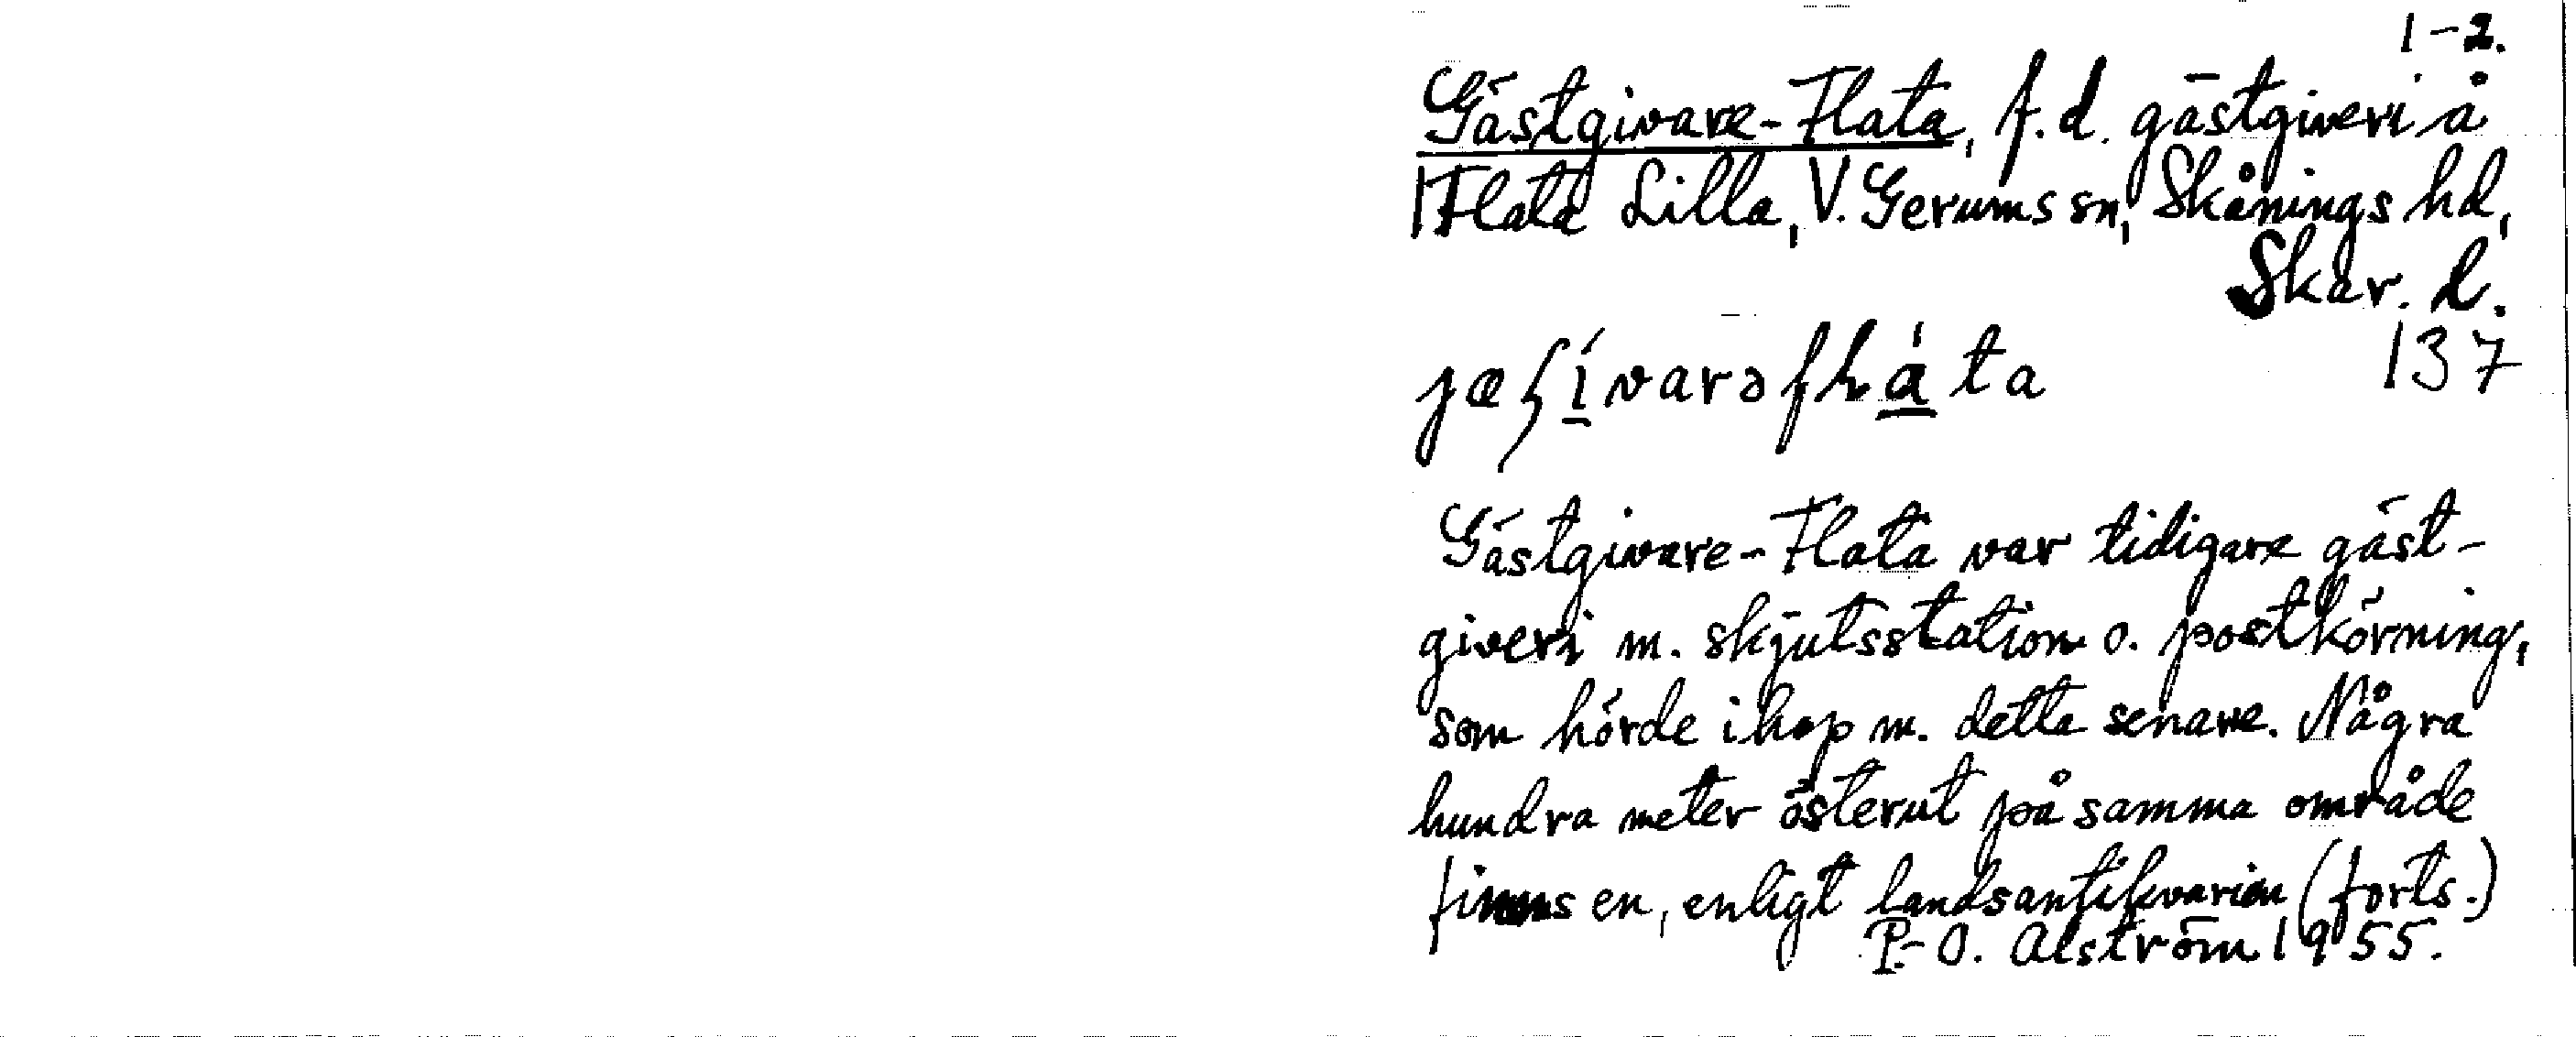 1-2.
Gästgivare-Flata, f.d. gästgiveri å
Flata Lilla, V. Gerums sn, Skånings hd,
Skar. l.
137
Gästgivare-Flata var tidigare gäst-
giveri m. skjutsstation o. postkörning,
som hörde ihop m. detta senare. Några
hundra meter österut på samma område
finns en, enligt landsantikvarien (forts.)
P.-O. Alström 1955.